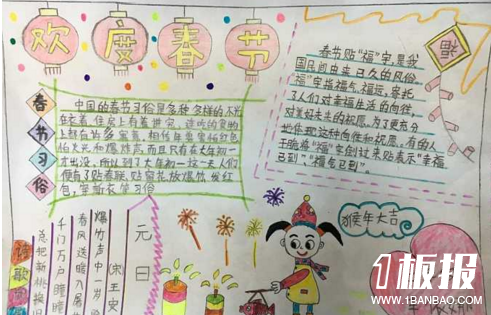 欢度春节
春节习俗
中国的春节习俗是多种多样的不光
在衣着住房上有着讲究，连吃的食物
上都有许多寓意，相传年兽害怕红色
怕火光和爆炸声，而且只有在大年初一
才出没，所以到了大年初一这一天人们
便有了贴春联，贴窗花，放爆竹，发红
包，穿新衣等习俗
春节贴“福”字，是我
国民间由来已久的风俗。
“福”字指福气，福运，寄托
了人们对幸福生活的向往，
对美好未来的祝愿。为了更充分
地体现这种向往和祝愿，有的人
干脆将“福”字倒过来贴表示“幸福
已到”，“福气已到”。
福
元日
（宋）王安
爆竹声中一岁
春风送暖入屠
千门万户曈曈
总把新桃换旧
诗歌
猴年大吉
1板报
WWW.1BANBAO.COM